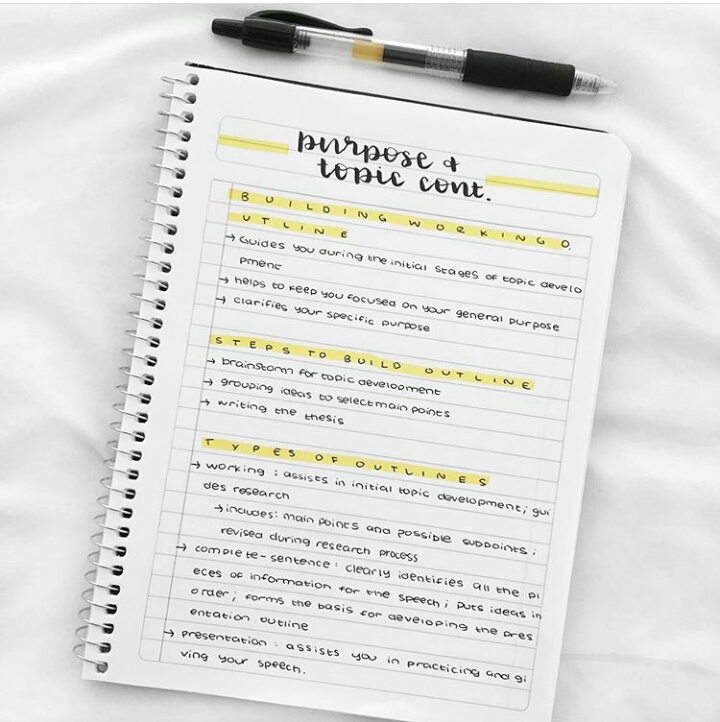 purpose &
topic cont.
BUILDING WORKING O
UTLINE
→ Guides you during the initial stages of topic develo
pment
→ helps to keep you focused on your general purpose
→ clarifies your specific purpose
STEPS TO BUILD OUTLINE
→ brainstorm for topic development
→ grouping ideas to select main points
→ writing the thesis
TYPES OF OUTLINES
→ working : assists in initial topic development; gui
des research
→ includes: main points and possible subpoints;
revised during research process
→ complete-sentence : clearly identifies all the pi
eces of information for the speech; puts ideas in
order; forms the basis for developing the pres
entation outline
→ presentation : assists you in practicing and gi
ving your speech.